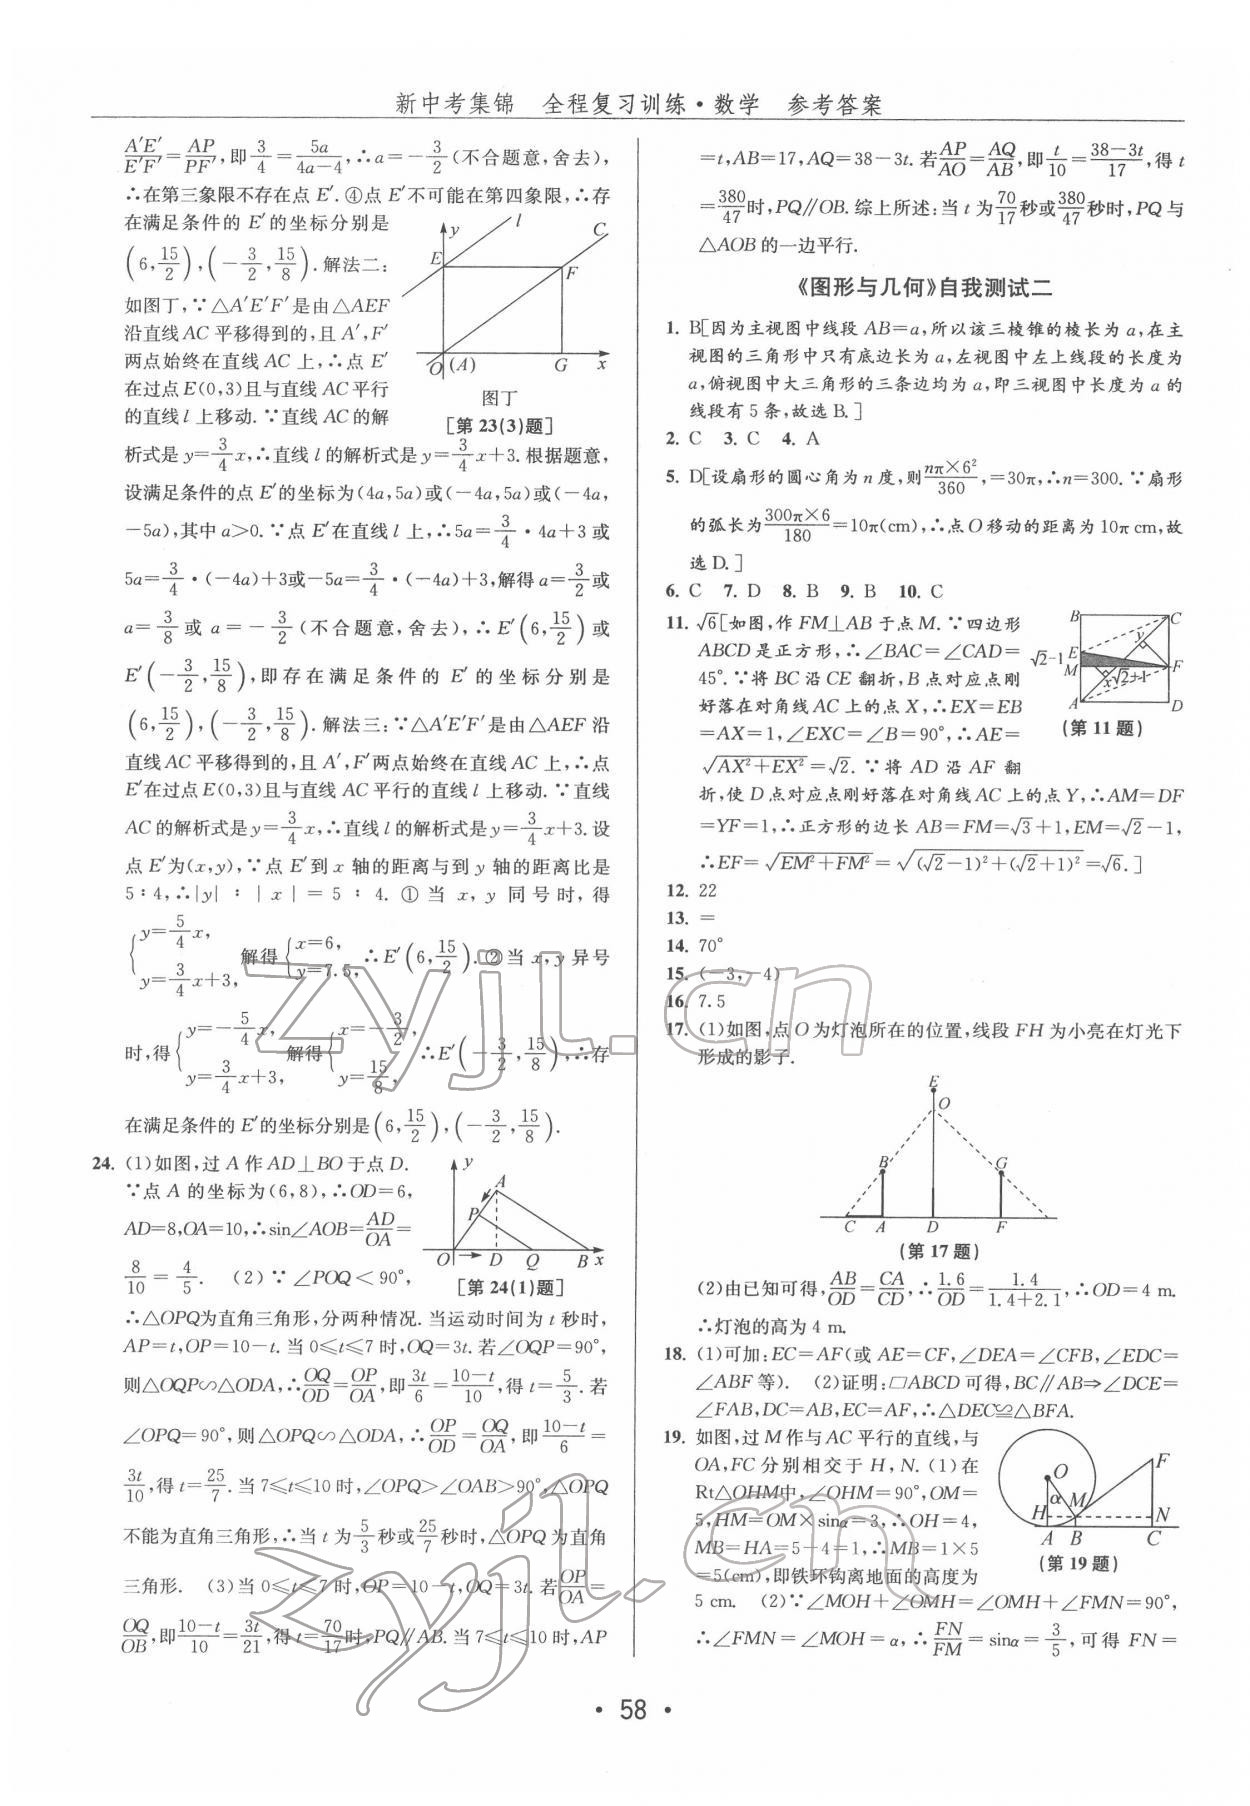 新中考集锦 全程复习训练·数学 参考答案
A′E′/E′F′=AP/PF′,即3/4=5a/(4a-4),∴a=-3/2(不合题意,舍去),
∴在第三象限不存在点 E′.④点 E′不可能在第四象限,∴存
在满足条件的 E′的坐标分别是
(6,15/2),(-3/2,15/8).解法二:
如图丁,∵△A′E′F′是由△AEF
沿直线 AC 平移得到的,且 A′,F′
两点始终在直线 AC 上,∴点 E′
在过点 E(0,3)且与直线 AC 平行
的直线 l 上移动.∵直线 AC 的解
y
l
C
E
F
O
(A)
G
x
图丁
[第 23(3)题]
析式是 y=3/4x,∴直线 l 的解析式是 y=3/4x+3.根据题意,
设满足条件的点 E′的坐标为(4a,5a)或(-4a,5a)或(-4a,
-5a),其中 a>0.∵点 E′在直线 l 上,∴5a=3/4·4a+3 或
5a=3/4·(-4a)+3或-5a=3/4·(-4a)+3,解得 a=3/2或
a=3/8或 a=-3/2(不合题意,舍去),∴E′(6,15/2)或
E′(-3/2,15/8),即存在满足条件的 E′的坐标分别是
(6,15/2),(-3/2,15/8).解法三:∵△A′E′F′是由△AEF 沿
直线 AC 平移得到的,且 A′,F′两点始终在直线 AC 上,∴点
E′在过点 E(0,3)且与直线 AC 平行的直线 l 上移动.∵直线
AC 的解析式是 y=3/4x,∴直线 l 的解析式是 y=3/4x+3.设
点 E′为(x,y),∵点 E′到 x 轴的距离与到 y 轴的距离比是
5∶4,∴|y|∶|x|=5∶4.①当 x,y 同号时,得
{y=5/4x, y=3/4x+3, 解得{x=6, y=7.5, ∴E′(6,15/2).②当 x,y 异号
时,得{y=-5/4x, y=3/4x+3, 解得{x=-3/2, y=15/8, ∴E′(-3/2,15/8),∴存
在满足条件的 E′的坐标分别是(6,15/2),(-3/2,15/8).
24. (1)如图,过 A 作 AD⊥BO 于点 D.
∵点 A 的坐标为(6,8),∴OD=6,
AD=8,OA=10,∴sin∠AOB=AD/OA=
8/10=4/5. (2)∵∠POQ<90°,
y
A
P
O
D
Q
B
x
[第 24(1)题]
∴△OPQ为直角三角形,分两种情况.当运动时间为 t 秒时,
AP=t,OP=10-t.当 0≤t≤7 时,OQ=3t.若∠OQP=90°,
则△OQP∽△ODA,∴OQ/OD=OP/OA,即3t/6=(10-t)/10,得 t=5/3.若
∠OPQ=90°,则△OPQ∽△ODA,∴OP/OD=OQ/OA,即(10-t)/6=
3t/10,得 t=25/7.当 7≤t≤10 时,∠OPQ>∠OAB>90°,△OPQ
不能为直角三角形,∴当 t 为5/3秒或25/7秒时,△OPQ 为直角
三角形. (3)当 0≤t≤7 时,OP=10-t,OQ=3t.若OP/OA=
OQ/OB,即(10-t)/10=3t/21,得 t=70/17时,PQ∥AB.当 7≤t≤10 时,AP
=t,AB=17,AQ=38-3t.若AP/AO=AQ/AB,即t/10=(38-3t)/17,得 t
=380/47时,PQ∥OB.综上所述:当 t 为70/17秒或380/47秒时,PQ 与
△AOB 的一边平行.
《图形与几何》自我测试二
1. B[因为主视图中线段 AB=a,所以该三棱锥的棱长为 a,在主
视图的三角形中只有底边长为 a,左视图中左上线段的长度为
a,俯视图中大三角形的三条边均为 a,即三视图中长度为 a 的
线段有 5 条,故选 B.]
2. C 3. C 4. A
5. D[设扇形的圆心角为 n 度,则nπ×6²/360,=30π,∴n=300.∵扇形
的弧长为300π×6/180=10π(cm),∴点 O 移动的距离为 10π cm,故
选 D.]
6. C 7. D 8. B 9. B 10. C
11. √6[如图,作 FM⊥AB 于点 M.∵四边形
ABCD 是正方形,∴∠BAC=∠CAD=
45°.∵将 BC 沿 CE 翻折,B 点对应点刚
好落在对角线 AC 上的点 X,∴EX=EB
=AX=1,∠EXC=∠B=90°,∴AE=
√(AX²+EX²)=√2.∵将 AD 沿 AF 翻
B
C
y
√2-1
E
M
F
x
√2+1
A
D
(第 11 题)
折,使 D 点对应点刚好落在对角线 AC 上的点 Y,∴AM=DF
=YF=1,∴正方形的边长 AB=FM=√3+1,EM=√2-1,
∴EF=√(EM²+FM²)=√((√2-1)²+(√2+1)²)=√6.]
12. 22
13. =
14. 70°
15. (-3,-4)
16. 7.5
17. (1)如图,点 O 为灯泡所在的位置,线段 FH 为小亮在灯光下
形成的影子.
E
O
B
G
C
A
D
F
(第 17 题)
(2)由已知可得,AB/OD=CA/CD,∴1.6/OD=1.4/(1.4+2.1),∴OD=4 m.
∴灯泡的高为 4 m.
18. (1)可加:EC=AF(或 AE=CF,∠DEA=∠CFB,∠EDC=
∠ABF 等). (2)证明:□ABCD 可得,BC∥AB⇒∠DCE=
∠FAB,DC=AB,EC=AF,∴△DEC≌△BFA.
19. 如图,过 M 作与 AC 平行的直线,与
OA,FC 分别相交于 H,N.(1)在
Rt△OHM中,∠OHM=90°,OM=
5,HM=OM×sinα=3,∴OH=4,
MB=HA=5-4=1,∴MB=1×5
=5(cm),即铁环钩离地面的高度为
5 cm. (2)∵∠MOH+∠OMH=∠OMH+∠FMN=90°,
O
F
α
H
M
N
A
B
C
(第 19 题)
∴∠FMN=∠MOH=α,∴FN/FM=sinα=3/5,可得 FN=
·58·
zyjl.cn
zyjl.cn